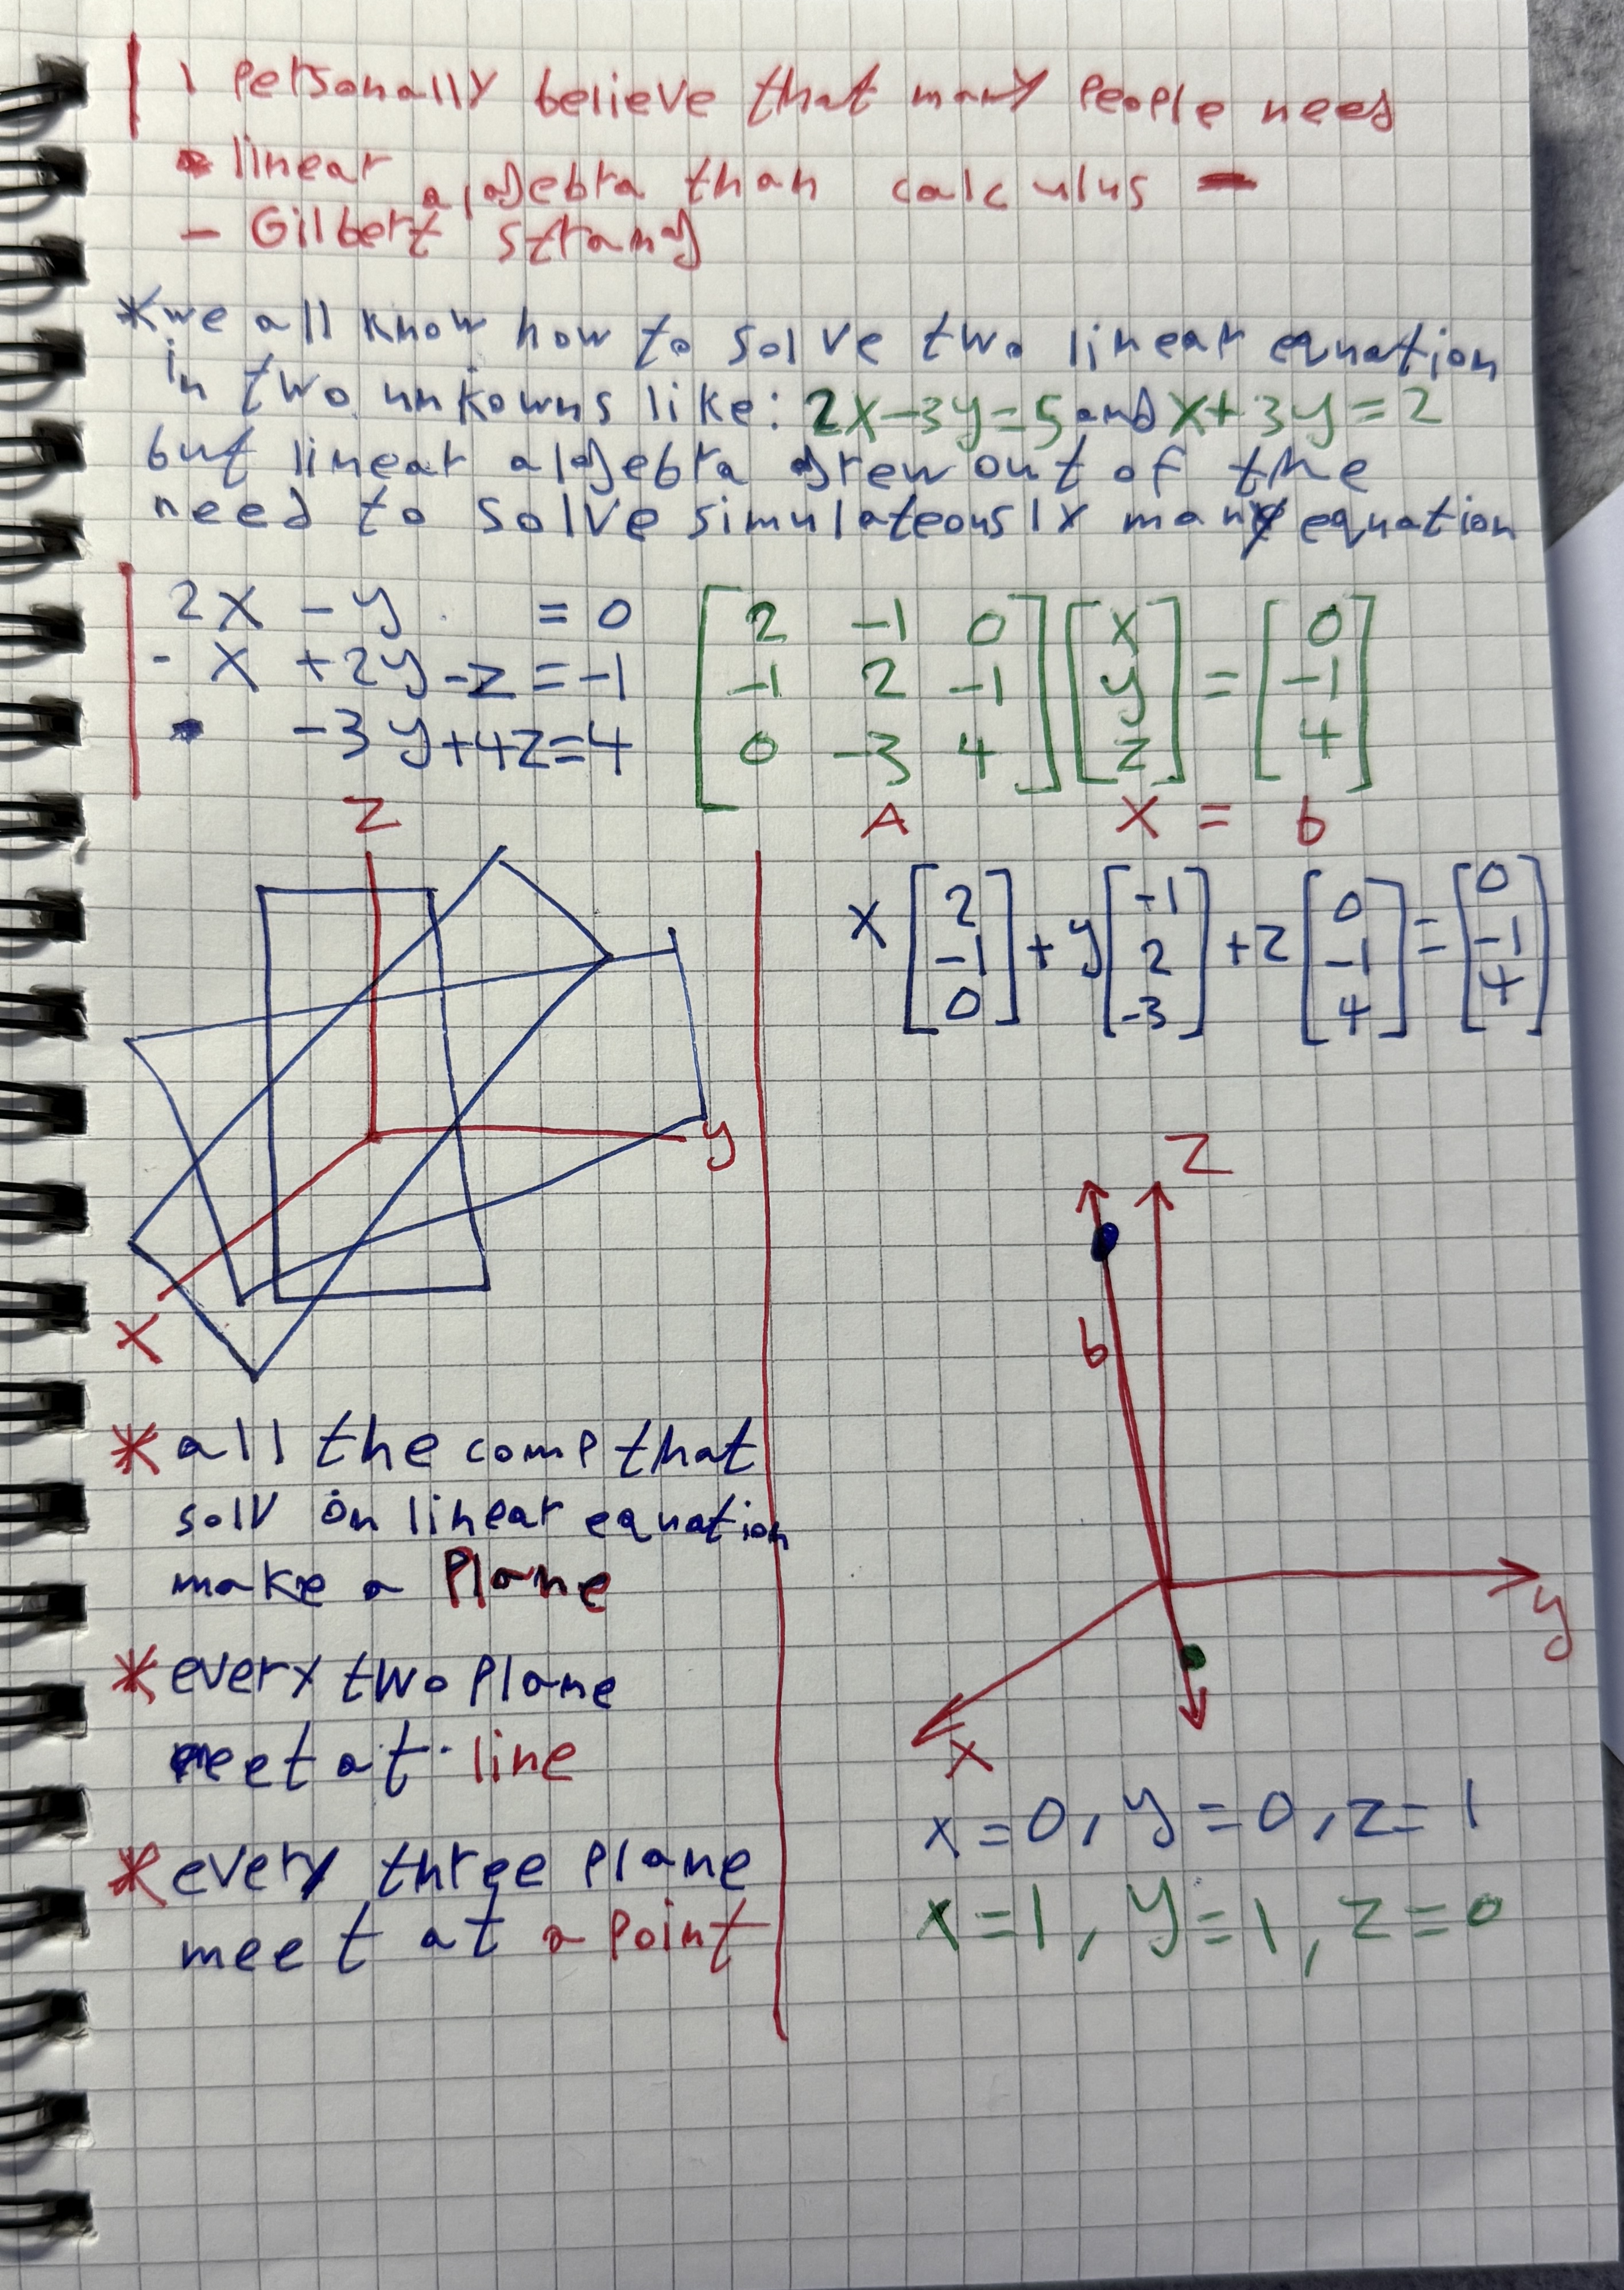 I Personally believe that many People need
linear algebra than calculus
- Gilbert strang
*we all know how to solve two linear equation
in two unkowns like: 2x-3y=5 and x+3y=2
but linear algebra grew out of the
need to solve simulateously many equation
2x - y = 0
-x + 2y - z = -1
-3y + 4z = 4
[2 -1 0] [x] = [0]
[-1 2 -1] [y] = [-1]
[0 -3 4] [z] = [4]
A x = b
x [2 -1 0] + y [-1 2 -3] + z [0 -1 4] = [0 -1 4]
z
y
x
* all the comp that
solv on linear equation
make a Plane
* every two Plane
meet at line
* every three Plane
meet at a Point
z
b
y
x
x=0, y=0, z=1
x=1, y=1, z=0